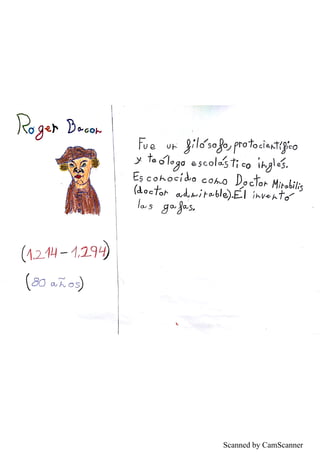 Roger Bacon
Fue un filósofo, protocientífico
y teólogo escolástico inglés.
Es conocido como Doctor Mirabilis
(doctor admirable). El inventó
las gafas.
(1.214-1.294)
(80 años)
Scanned by CamScanner